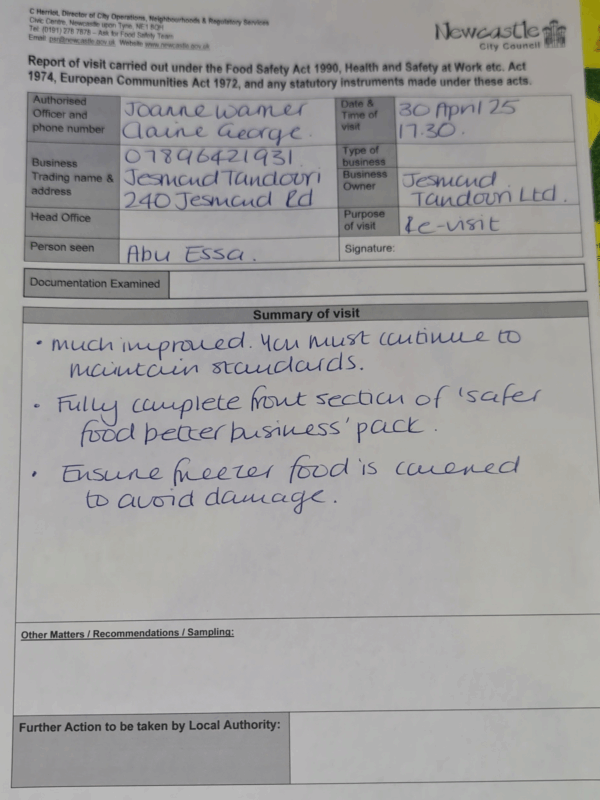 C Herriot, Director of City Operations, Neighbourhoods & Regulatory Services
Civic Centre, Newcastle upon Tyne, NE1 8QH
Tel: (0191) 278 7878 – Ask for Food Safety Team
Email: psr@newcastle.gov.uk Website www.newcastle.gov.uk
Newcastle
City Council
Report of visit carried out under the Food Safety Act 1990, Health and Safety at Work etc. Act
1974, European Communities Act 1972, and any statutory instruments made under these acts.
Authorised
Officer and
phone number
Joanne Warner
Claine George.
07896421931
Date &
Time of
visit
30 April 25
17.30.
Business
Trading name &
address
Jesmond Tandoori
240 Jesmond Rd
Type of
business
Business
Owner
Jesmond
Tandouri Ltd.
Head Office
Purpose
of visit
Re-visit
Person seen
Abu Essa.
Signature:
Documentation Examined
Summary of visit
• Much improved. You must continue to
maintain standards.
• Fully complete front section of 'safer
food better business' pack.
• Ensure freezer food is covered
to avoid damage.
Other Matters / Recommendations / Sampling:
Further Action to be taken by Local Authority: